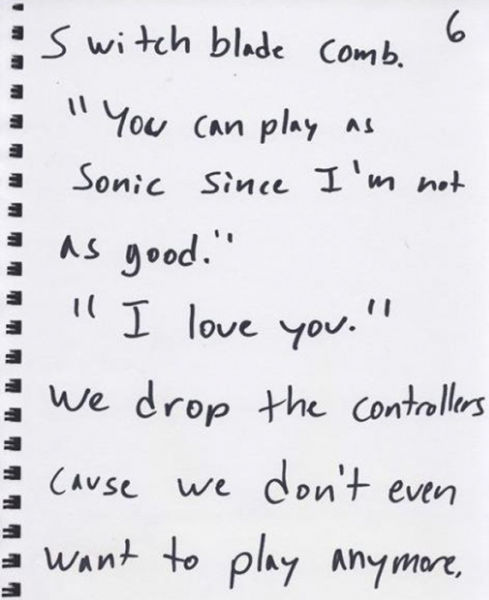 6
Switchblade comb.
"You can play as
Sonic since I'm not
as good."
"I love you."
We drop the controllers
cause we don't even
want to play anymore.